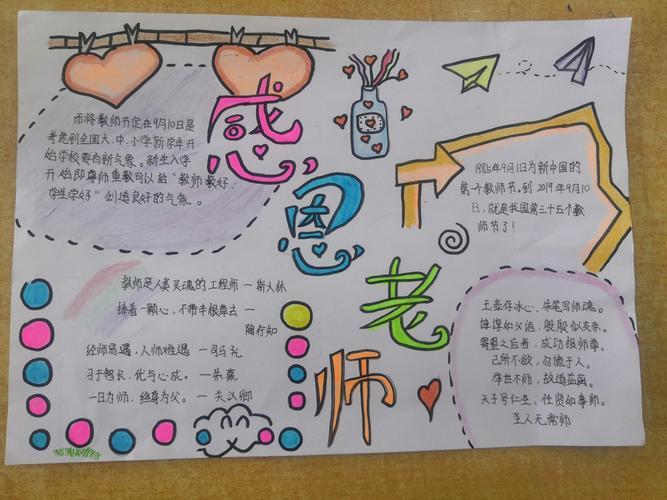 感恩老师
而将教师节定在9月10日是
考虑到全国大、中、小学新学年开
始学校要有新气象。新生入学
开始即尊师重教可以给“教师教好,
学生学好”创造良好的气氛。
1985年9月10日为新中国的
第一个教师节。到2019年9月10
日,就是我国第三十五个教
师节了!
教师是人类灵魂的工程师—斯大林
捧着一颗心,不带半根草去—
陶行知
经师易遇,人师难遇—司马光
习于智长,优与心成。—朱熹
一日为师,终身为父。—关汉卿
玉壶存冰心,朱笔写师魂。
谆谆如父语,殷殷似友亲。
蜀望之后者,成功报师尊。
己所不欲,勿施于人。
举世不师,故道益离。
天子号仁圣,任贤如事师。
圣人无常师